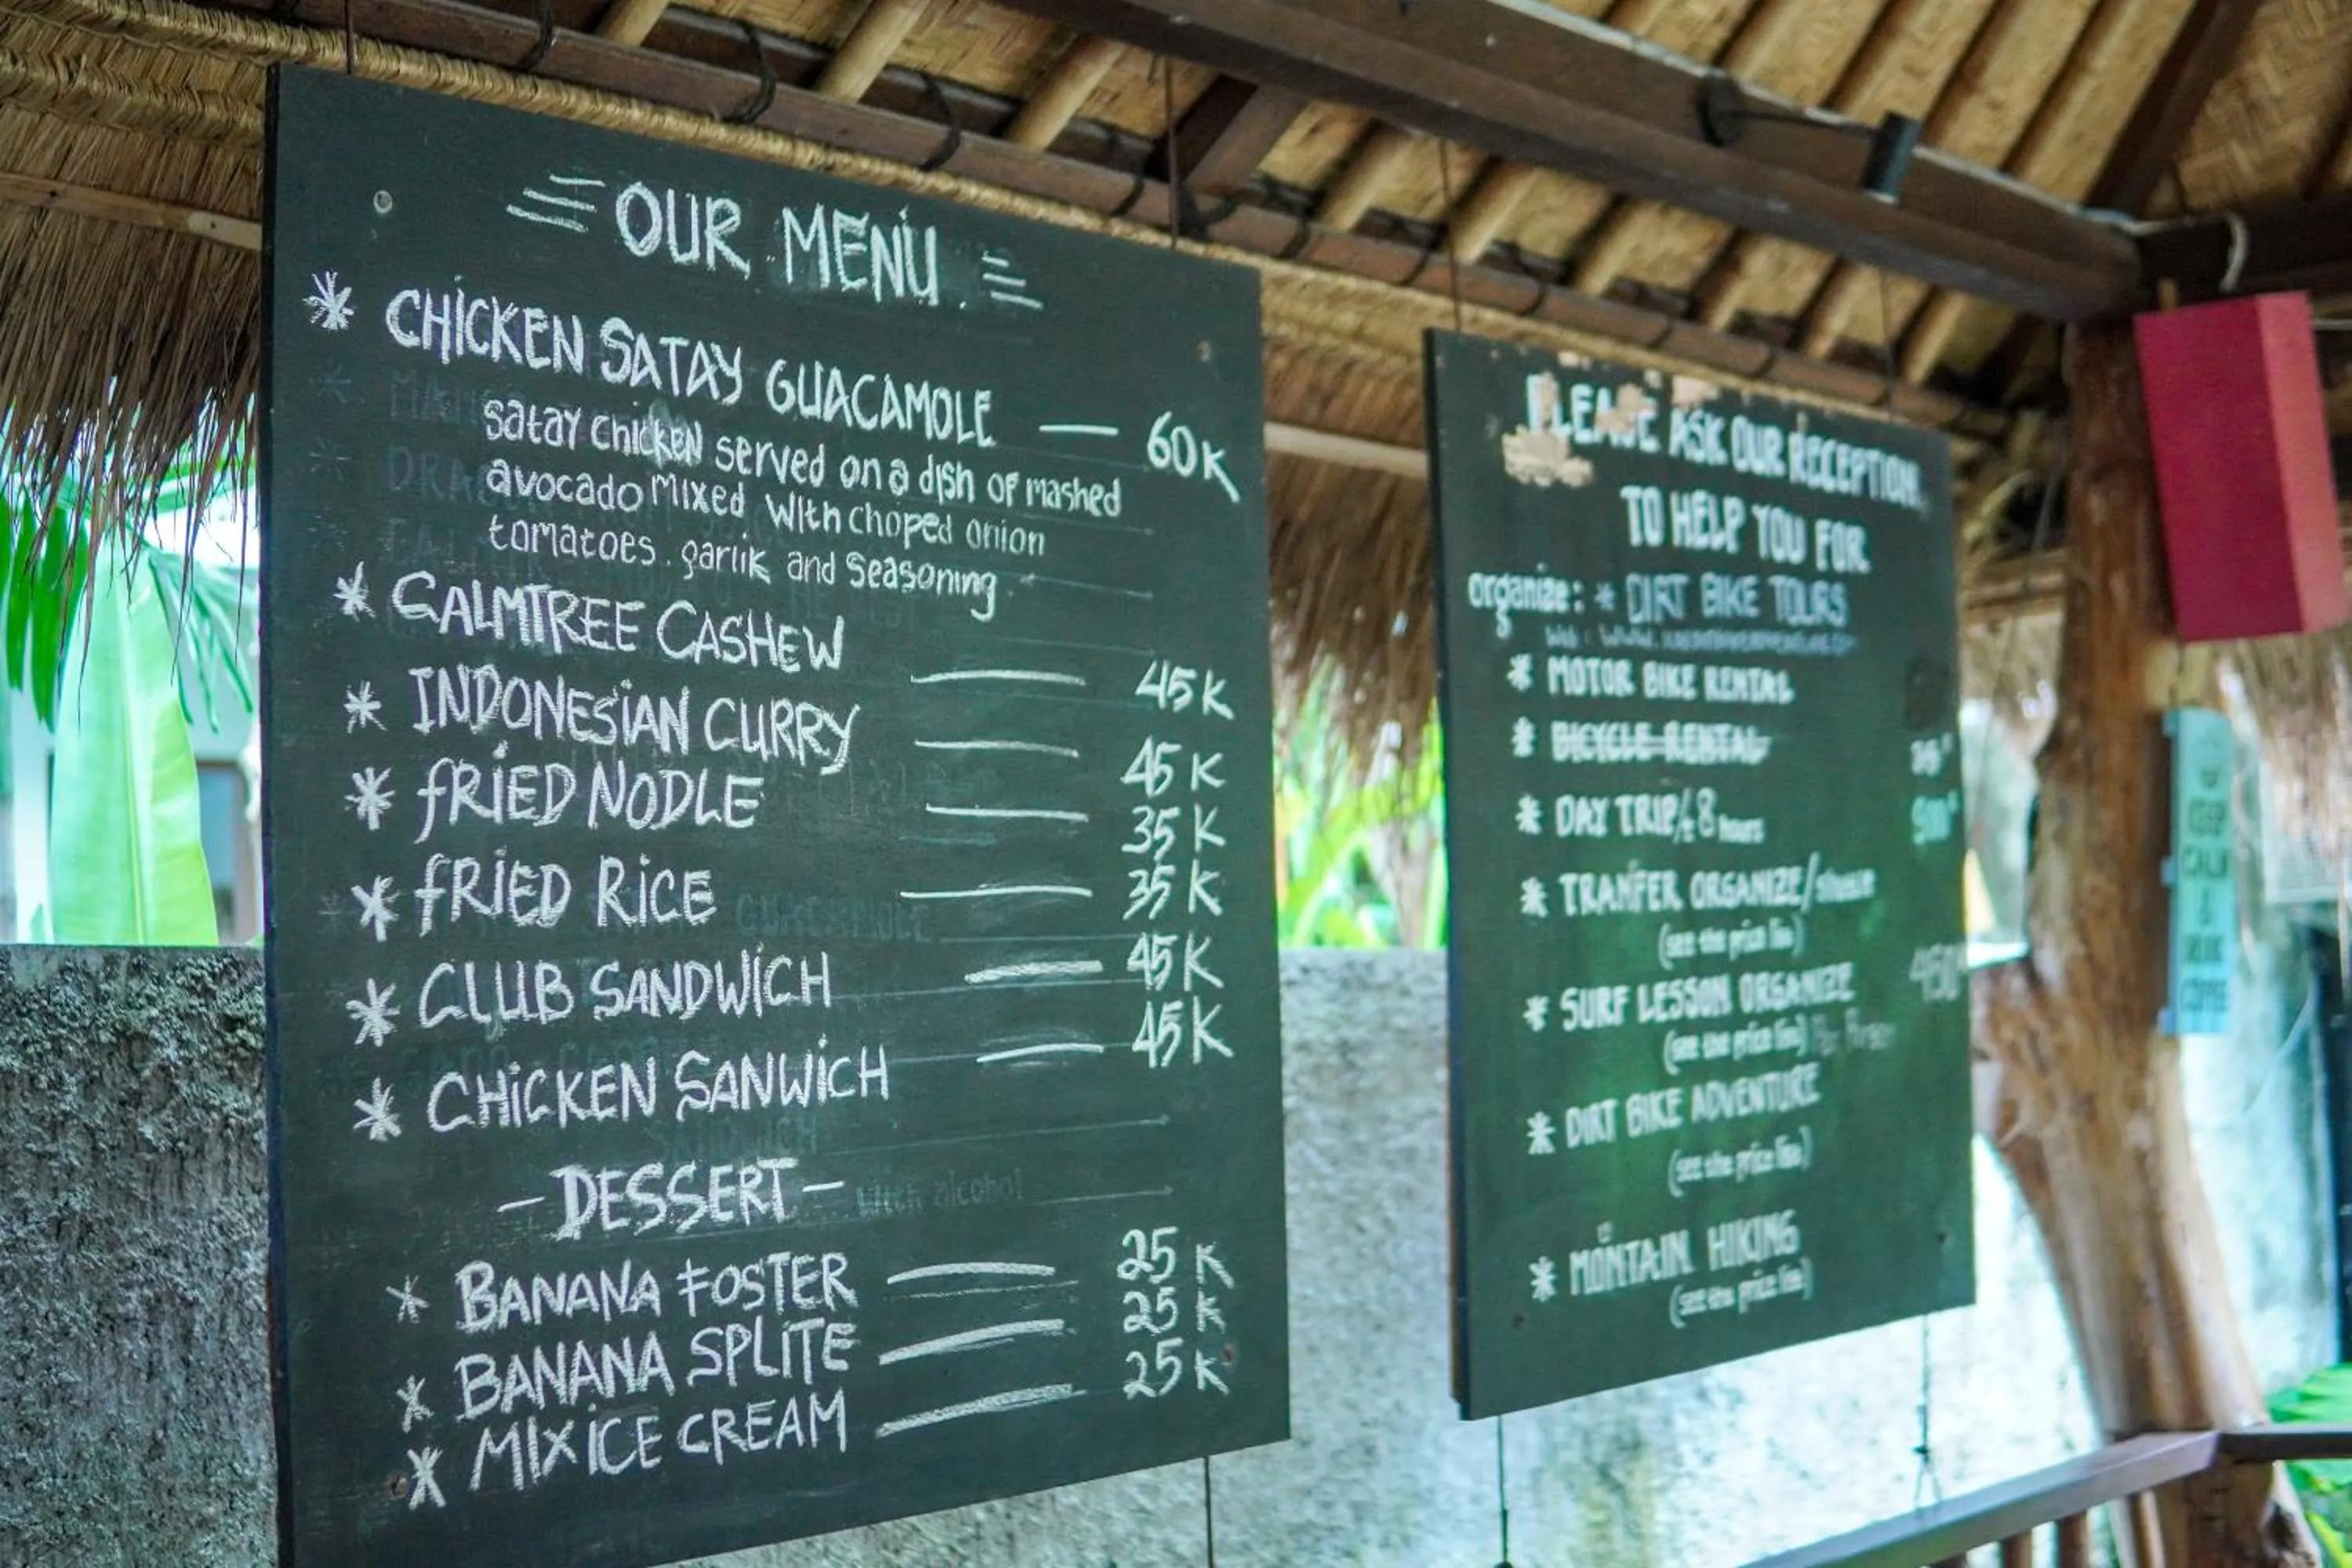 OUR MENU
* CHICKEN SATAY GUACAMOLE — 60K
satay chicken served on a dish of mashed
avocado mixed with choped onion
tomatoes. garlik and seasoning.
* CALMTREE CASHEW — 45K
* INDONESIAN CURRY — 45K
* FRIED NODLE — 35K
* FRIED RICE — 35K
* CLUB SANDWICH — 45K
* CHICKEN SANWICH — 45K
- DESSERT -
with alcohol
* BANANA FOSTER — 25K
* BANANA SPLITE — 25K
* MIX ICE CREAM — 25K
PLEASE ASK OUR RECEPTION
TO HELP YOU FOR
organize: * DIRT BIKE TOURS
* MOTOR BIKE RENTAL
* BICYCLE RENTAL
* DAY TRIP/ 8 hours
* TRANFER ORGANIZE/
(see the price list)
* SURF LESSON ORGANIZE 450
(see the price list) Per Person
* DIRT BIKE ADVENTURE
(see the price list)
* MONTAIN HIKING
(see the price list)
KEEP
CALM
&
DRINK
COFFEE